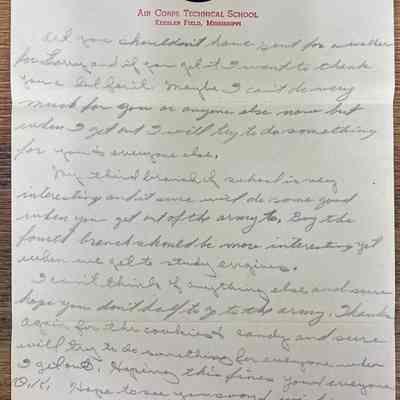 AIR CORPS TECHNICAL SCHOOL
KEESLER FIELD, MISSISSIPPI
you shouldn't have sent for a
for Larry and if you get it I want to thank
you a lot for it. Maybe I can't do very
much for you or anyone else now but
when I get out I will try to do something
for you & everyone else.
My third branch of school is very
interesting and it sure will do some good
when you get out of the army to. Boy the
fourth branch should be more interesting yet
when we get to study engines.
I can't think of anything else and sure
hope you don't haff to go to the army. Thanks
again for the cookies & candy and sure
will try to do something for everyone when
I get out. Hoping this fines you & everyone
O.K. Hope to see you